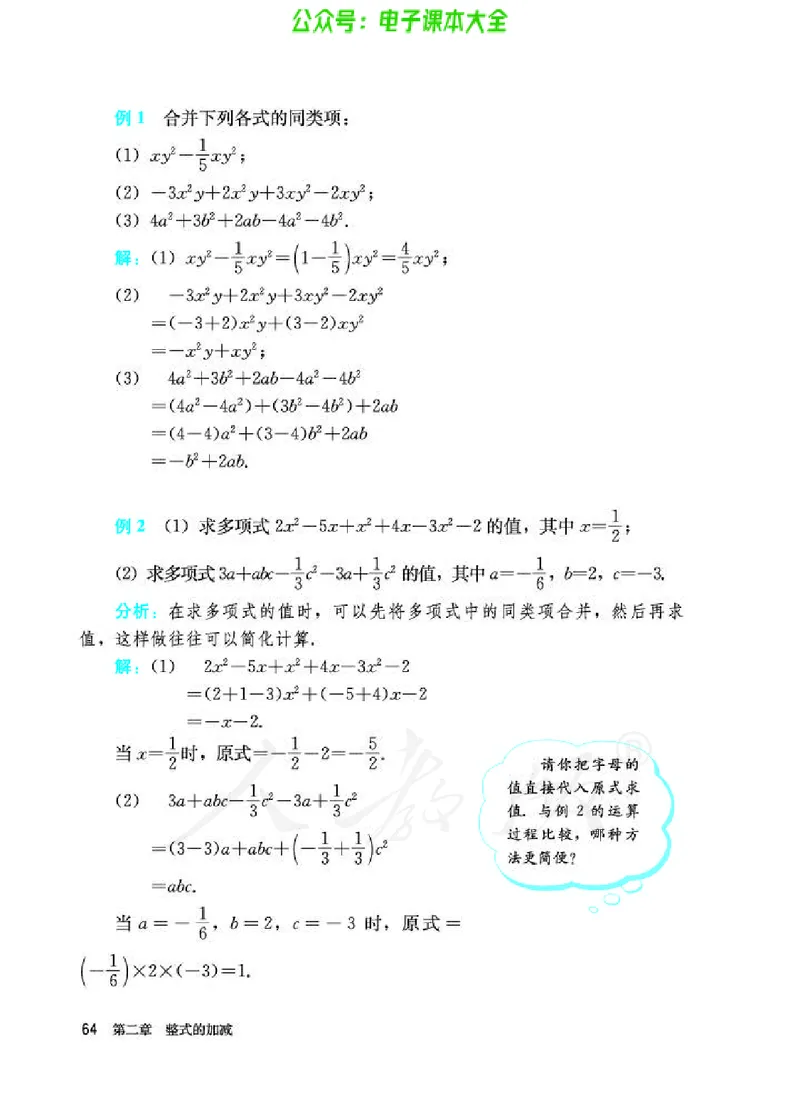 公众号：电子课本大全
例1 合并下列各式的同类项：
(1) xy²－1/5xy²；
(2) －3x²y＋2x²y＋3xy²－2xy²；
(3) 4a²＋3b²＋2ab－4a²－4b².
解：(1) xy²－1/5xy²＝(1－1/5)xy²＝4/5xy²；
(2) －3x²y＋2x²y＋3xy²－2xy²
＝(－3＋2)x²y＋(3－2)xy²
＝－x²y＋xy²；
(3) 4a²＋3b²＋2ab－4a²－4b²
＝(4a²－4a²)＋(3b²－4b²)＋2ab
＝(4－4)a²＋(3－4)b²＋2ab
＝－b²＋2ab.
例2 (1) 求多项式 2x²－5x＋x²＋4x－3x²－2 的值，其中 x＝1/2；
(2) 求多项式 3a＋abc－1/3c²－3a＋1/3c² 的值，其中 a＝－1/6，b＝2，c＝－3.
分析：在求多项式的值时，可以先将多项式中的同类项合并，然后再求
值，这样做往往可以简化计算.
解：(1) 2x²－5x＋x²＋4x－3x²－2
＝(2＋1－3)x²＋(－5＋4)x－2
＝－x－2.
当 x＝1/2时，原式＝－1/2－2＝－5/2.
(2) 3a＋abc－1/3c²－3a＋1/3c²
＝(3－3)a＋abc＋(－1/3＋1/3)c²
＝abc.
当 a＝－1/6，b＝2，c＝－3 时，原式＝
(－1/6)×2×(－3)＝1.
请你把字母的
值直接代入原式求
值. 与例 2 的运算
过程比较，哪种方
法更简便？
64 第二章 整式的加减